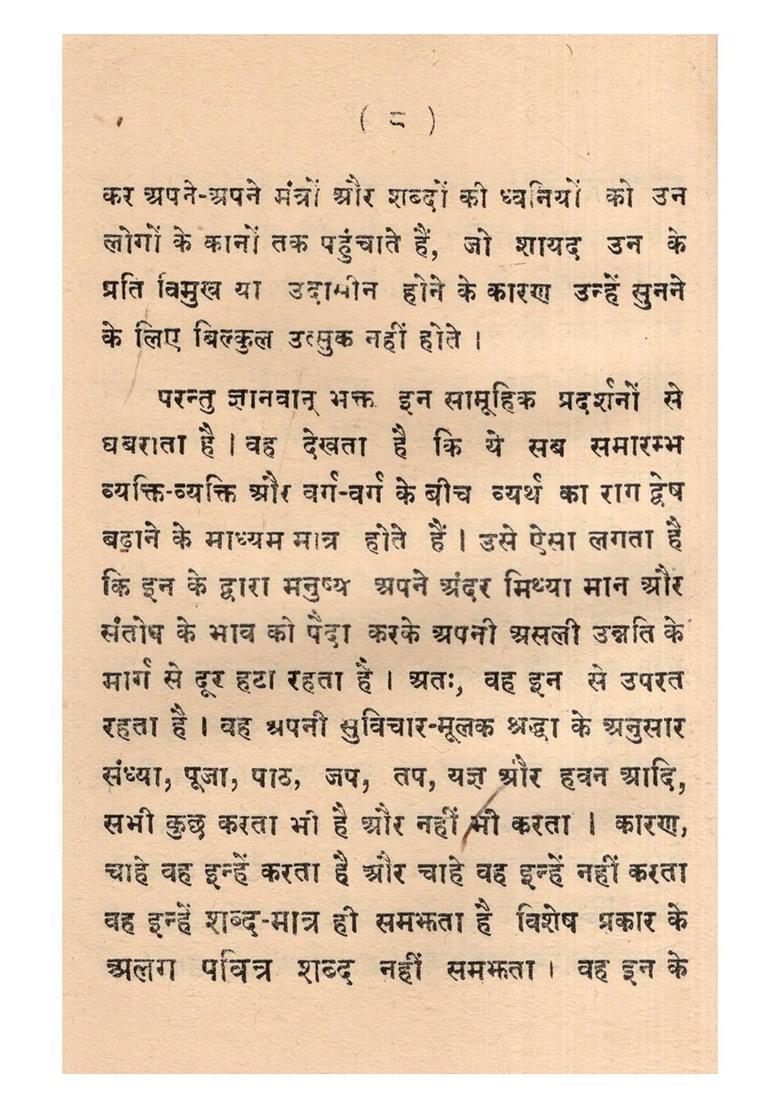 ( ८ )
कर अपने-अपने मंत्रों और शब्दों की ध्वनियों को उन
लोगों के कानों तक पहुंचाते हैं, जो शायद उन के
प्रति विमुख या उदासीन होने के कारण उन्हें सुनने
के लिए बिल्कुल उत्सुक नहीं होते ।
परन्तु ज्ञानवान् भक्त इन सामूहिक प्रदर्शनों से
घबराता है । वह देखता है कि ये सब समारम्भ
व्यक्ति-व्यक्ति और वर्ग-वर्ग के बीच व्यर्थ का राग द्वेष
बढ़ाने के माध्यम मात्र होते हैं । उसे ऐसा लगता है
कि इन के द्वारा मनुष्य अपने अंदर मिथ्या मान और
संतोष के भाव को पैदा करके अपनी असली उन्नति के
मार्ग से दूर हटा रहता है । अतः, वह इन से उपरत
रहता है । वह अपनी सुविचार-मूलक श्रद्धा के अनुसार
संध्या, पूजा, पाठ, जप, तप, यज्ञ और हवन आदि,
सभी कुछ करता भी है और नहीं भी करता । कारण,
चाहे वह इन्हें करता है और चाहे वह इन्हें नहीं करता
वह इन्हें शब्द-मात्र ही समझता है विशेष प्रकार के
अलग पवित्र शब्द नहीं समझता । वह इन के